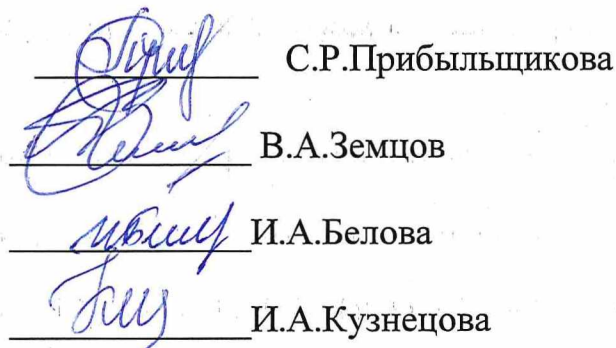 С.Р.Прибыльщикова
В.А.Земцов
И.А.Белова
И.А.Кузнецова